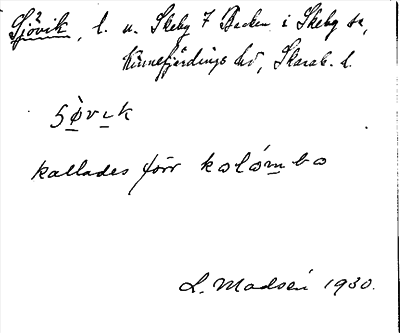 Sjövik, l. u. Skeby 7 Backen i Skeby sn,
Kinnefjärdings hd, Skarab. l.
Sövik
kallades förr kolómbo
L. Madsén 1930.